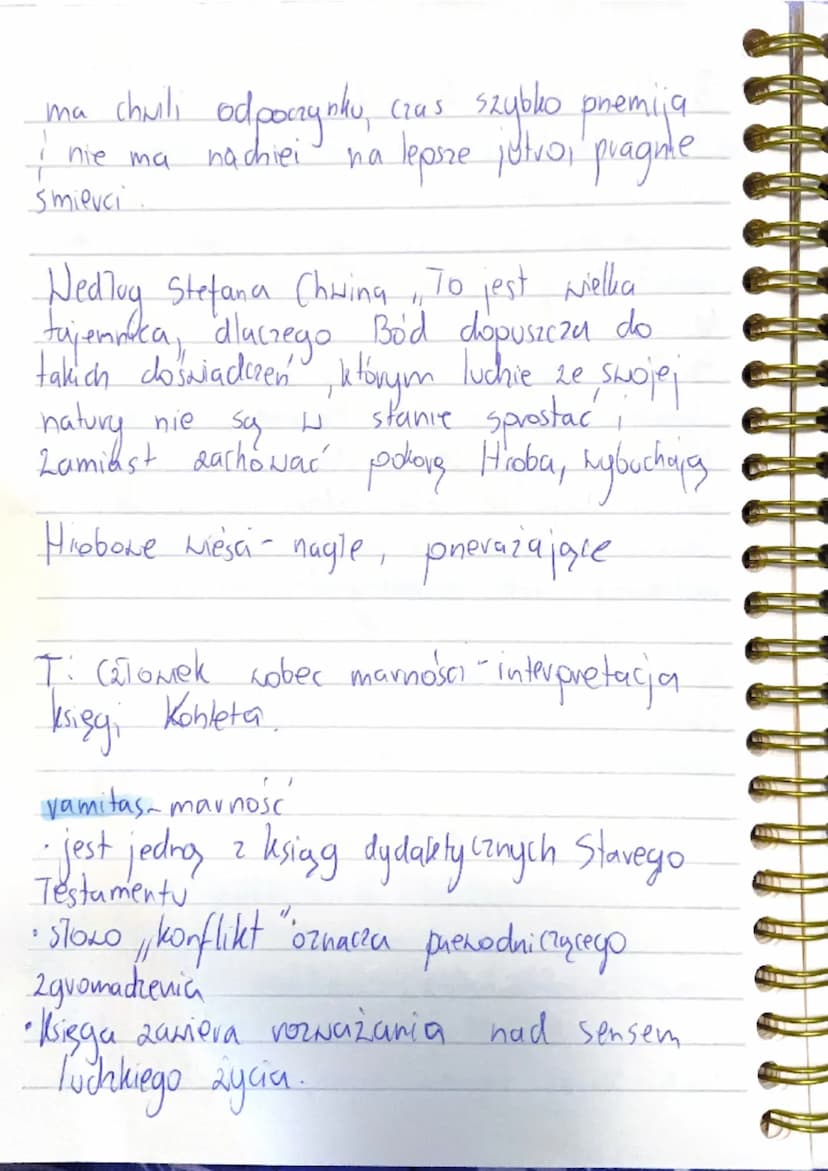 ma chwili odpoczynku, czas szybko przemija
i nie ma nadziei na lepsze jutro, pragnie
śmierci.
Według Stefana Chwina „To jest wielka
tajemnica, dlaczego Bód dopuszcza do
takich doświadczeń", którym ludzie ze swojej
natury nie są w stanie sprostać i
zamiast zachować pokorę Hioba, wybuchają
Hiobowe wieści - nagle, przerażające
T: Człowiek wobec marności - interpretacja
księgi Kohleta.
vamitas - marność
· jest jedną z ksiąg dydaktycznych Starego
Testamentu
· słowo „konflikt" oznacza przewodniczącego
zgromadzenia
· Księga zawiera rozważania nad sensem
ludzkiego życia.